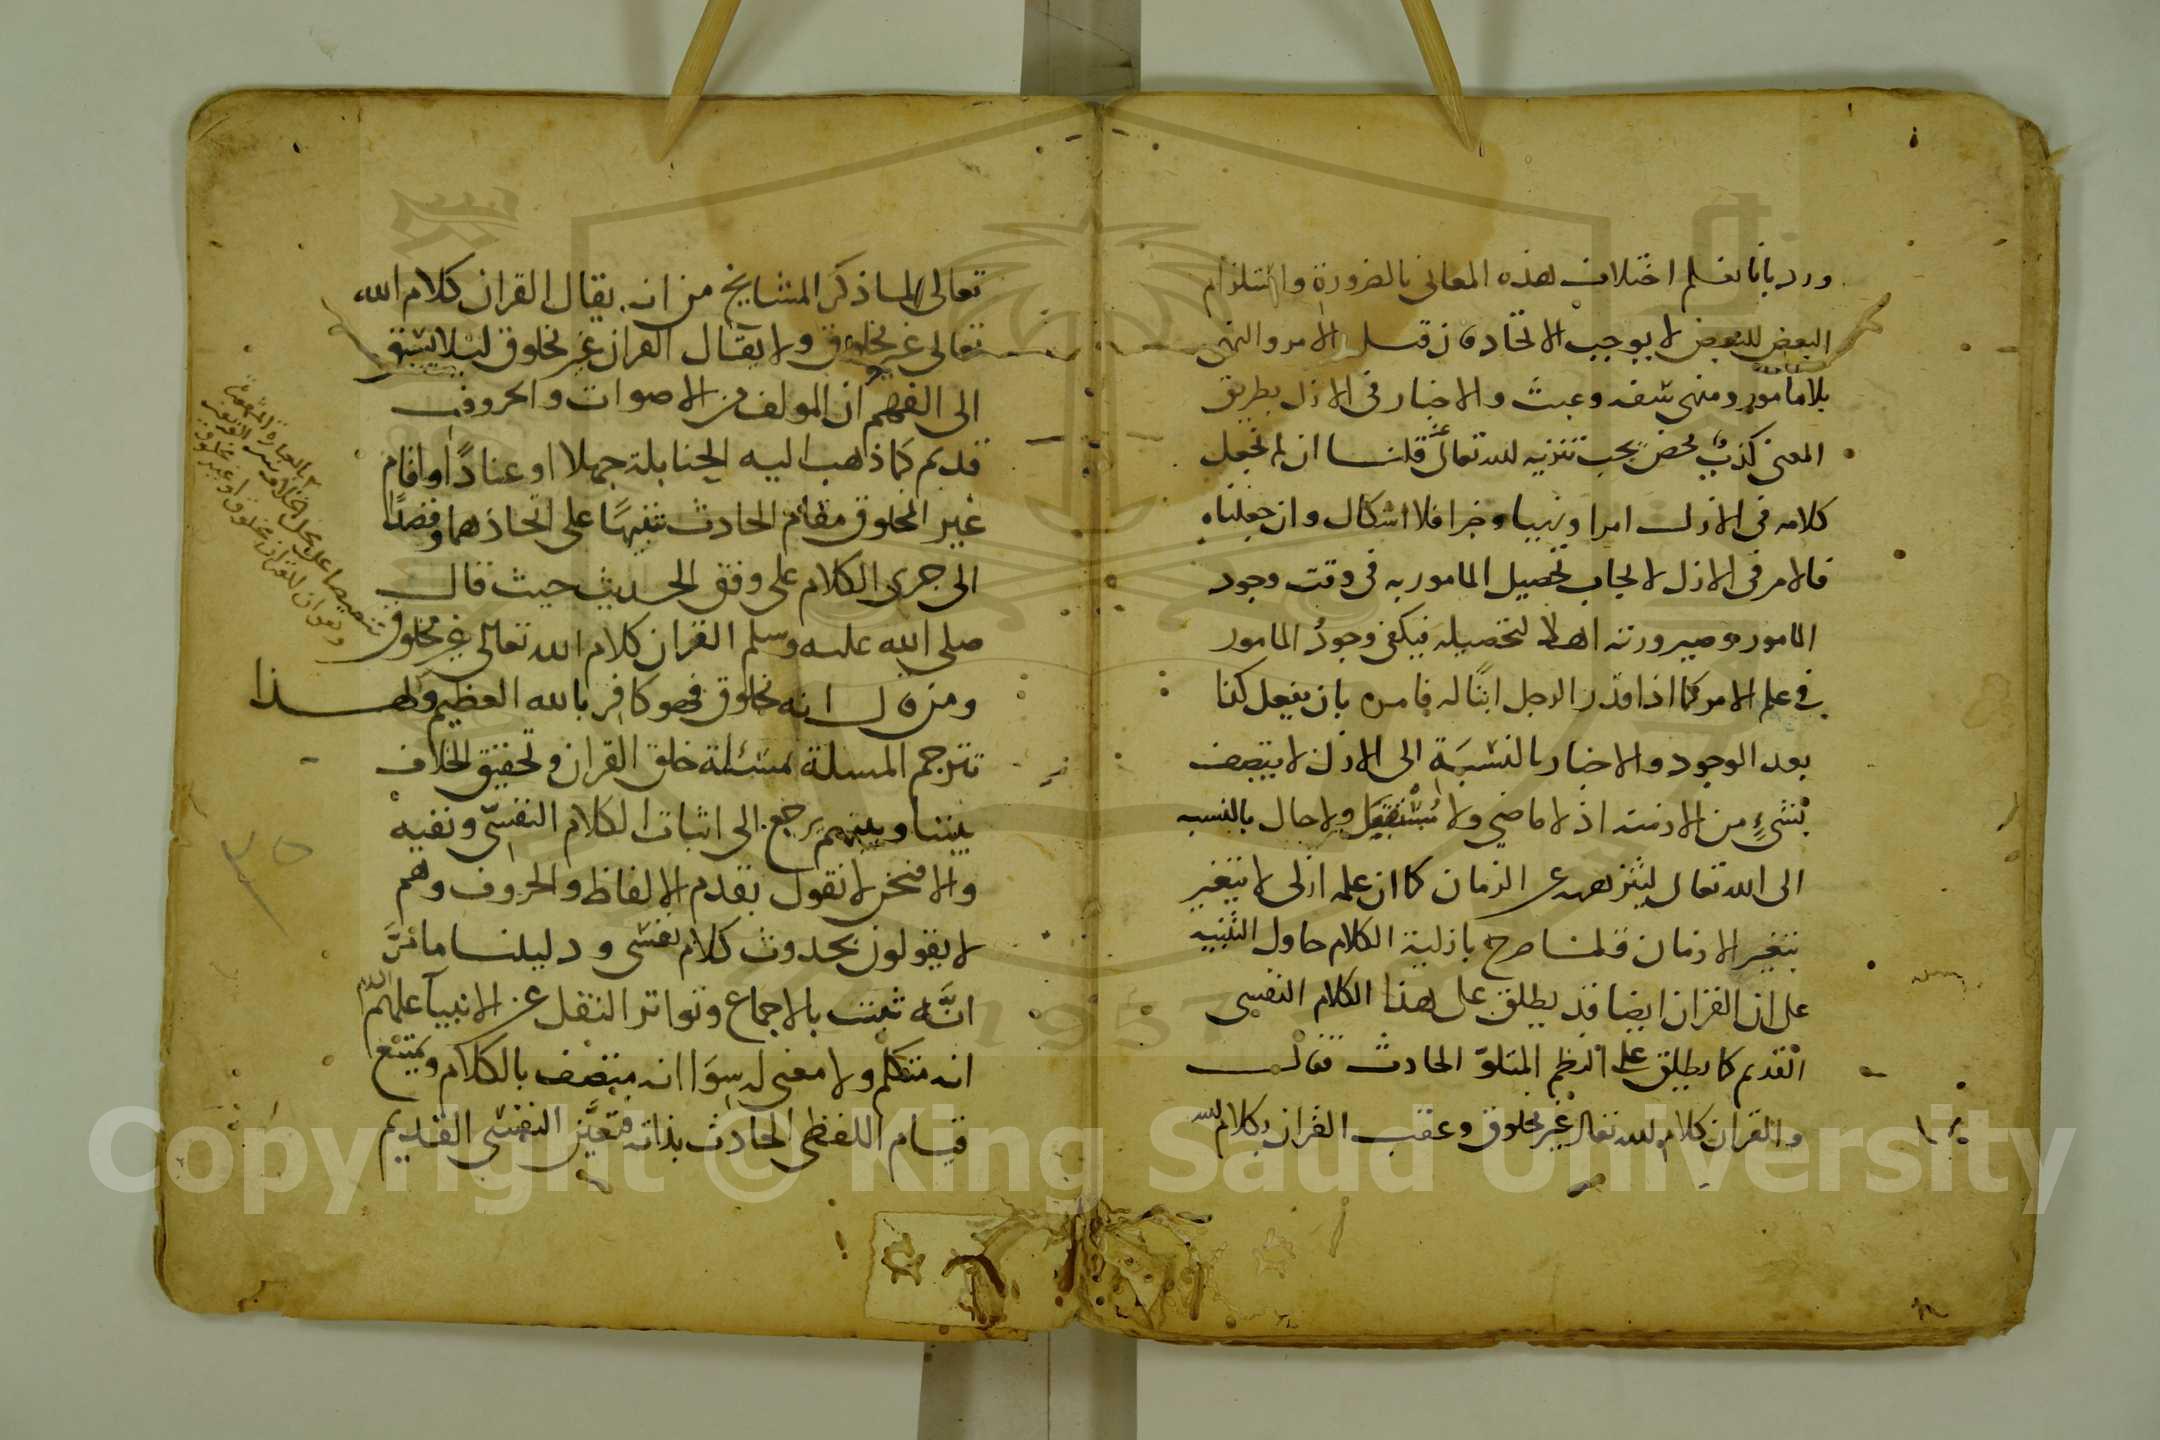 ورد بانا نعلم اختلاف هذه المعاني بالضرورة واستلزام
البعض للبعض لا يوجب الاتحاد فان قيل الامر والنهي
بلا مامور ومنهى سفه وعبث والاخبار في الازل بطريق
المضى كذب محض يجب تنزيه الله تعالى عنه قلنا ان لم نجعل
كلامه في الازل امرا ونهيا وخبرا فلا اشكال وان جعلناه
فالامر في الازل لايجاب تحصيل المامور به في وقت وجود
المامور وصيرورته اهلا لتحصيله فيكفى وجود المامور
في علم الامر كما اذا قدر الرجل ابنا له فامره بان يفعل كذا
بعد الوجود والاخبار بالنسبة الى الازل لا يتصف
بشىء من الازمنه اذ لا ماضي ولا مستقبل ولا حال بالنسبه
الى الله تعالى لتنزهه عن الزمان كما ان علمه ازلى لا يتغير
بتغير الازمان فلما صرح بازلية الكلام حاول التنبيه
على ان القران ايضا قد يطلق على هذا الكلام النفسى
القديم كما يطلق على النظم المتلو الحادث فقال
والقران كلام الله تعالى غير مخلوق وعقب القران بكلام الله
تعالى لما ذكر المشايخ من انه يقال القران كلام الله
تعالى غير مخلوق ولا يقال القران غير مخلوق ليلا يسبق
الى الفهم ان المولف من الاصوات والحروف
قديم كما ذهب اليه الحنابلة جهلا او عنادا واقام
غير المخلوق مقام الحادث تنبيها على اتحادهما وقصدا
الى جرى الكلام على وفق الحديث حيث قال
صلى الله عليه وسلم القران كلام الله تعالى غير مخلوق
ومن قال انه مخلوق فهو كافر بالله العظيم ولهذا
تترجم المسلة بمسئلة خلق القران وتحقيق الخلاف
بيننا وبينهم يرجع الى اثبات الكلام النفسى ونفيه
والا فنحن لا نقول بقدم الالفاظ والحروف وهم
لا يقولون بحدوث كلام نفسى ودليلنا ما مر
انه ثبت بالاجماع وتواتر النقل عن الانبيآ عليهم السلام
انه متكلم ولا معنى له سوا انه متصف بالكلام ويمتنع
قيام اللفظى الحادث بذاته فتعين النفسى القديم
بالعبارة المشهورة
تنصيصا على محل الخلاف بين الفريقين
وهو ان القران مخلوق او غير مخلوق
٣٥